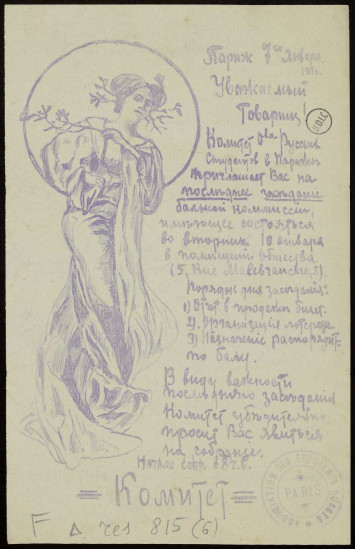 Париж 7го Января
1911г.
Уважаемый
Товарищ!
Комитет О-ва Русских
Студентов в Париже
приглашает Вас на
последнее заседание
бальной коммиссии,
имеющее состояться
во вторник 10 января
в помещении общества
(5, Rue
Порядок дня заседания:
1) Отчет в продаже билет.
2) Организація лотереи
3) Назначение распорядит.
по балу.
В виду важности
последняго заседания
Комитет убедительно
просит Вас явиться
на собрание.
Начало собр. в 8 ч. в.
= Комитет =
ASSOCIATION DES ÉTUDIANTS RUSSES
PARIS
F Δ rés 815 (6)